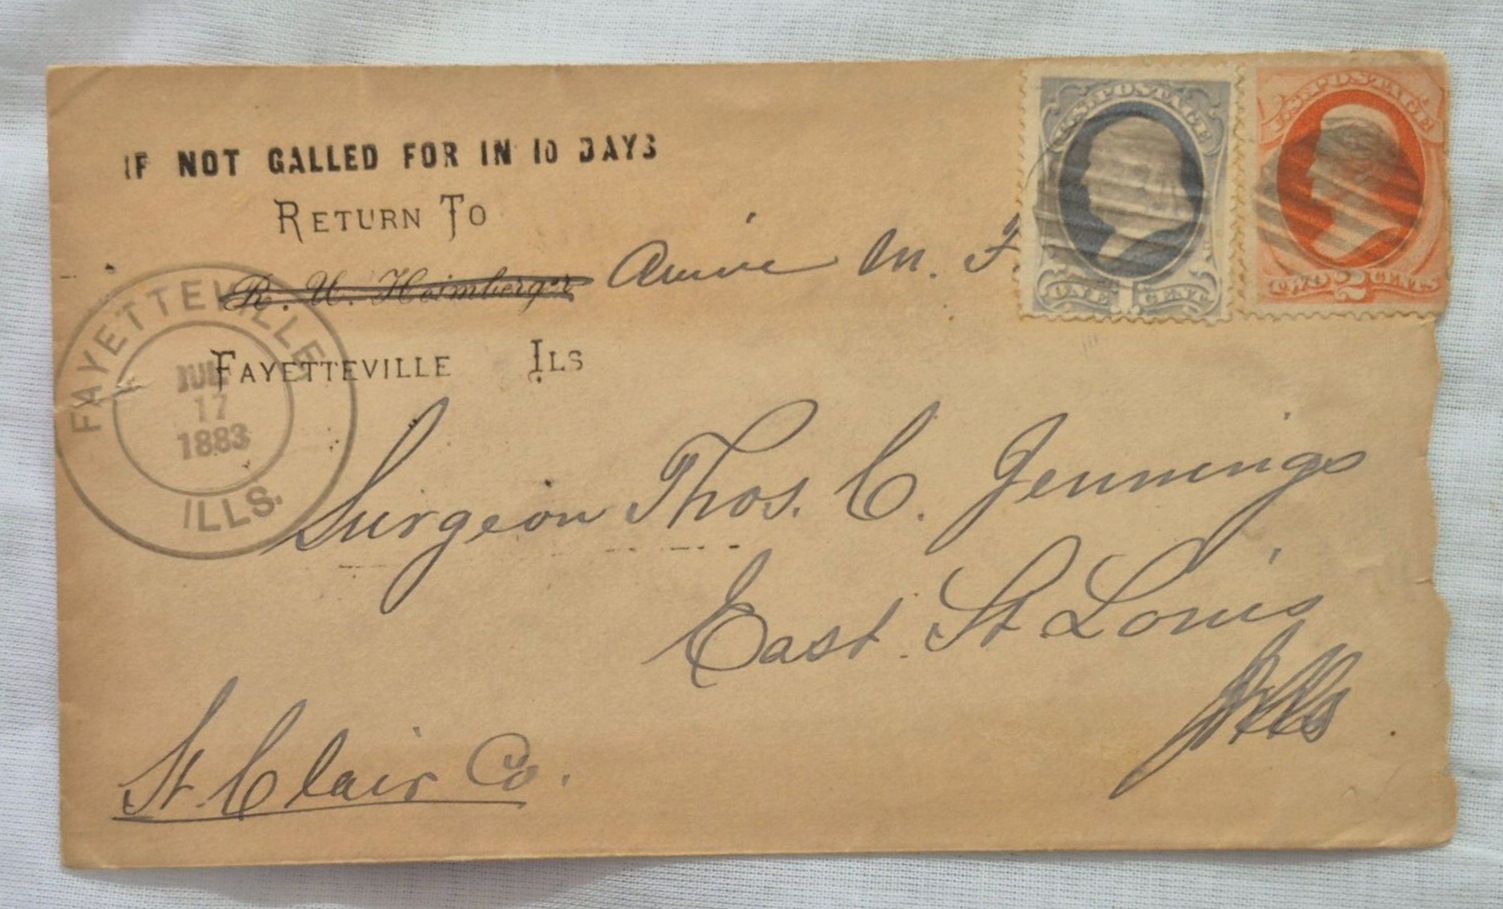 IF NOT CALLED FOR IN 10 DAYS
RETURN TO
R. U. Heimberger Annie M. F
FAYETTEVILLE ILS
FAYETTEVILLE
JUL
17
1883
ILLS.
U.S. POSTAGE
ONE 1 CENT
U.S. POSTAGE
TWO 2 CENTS
Surgeon Thos. C. Jennings
East St Louis
Ills
St. Clair Co.